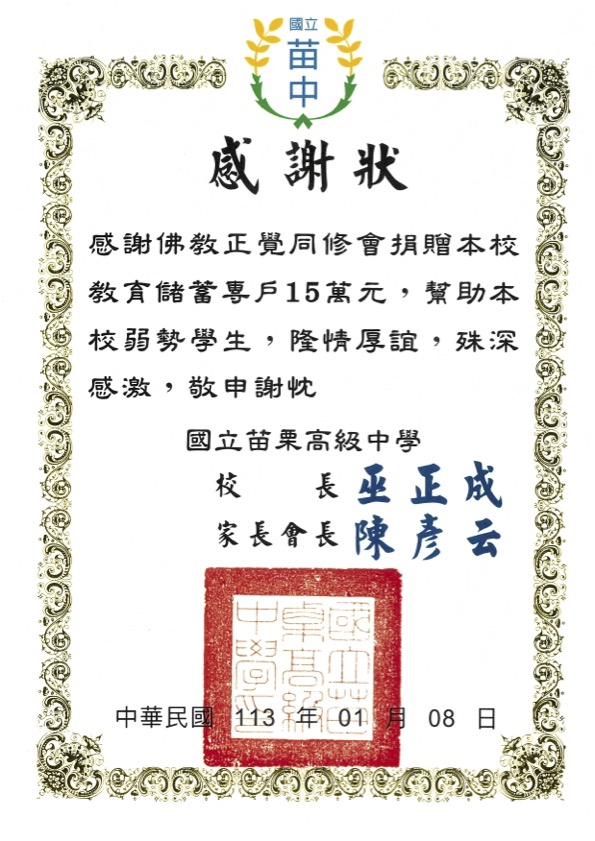 國立
苗中
感謝狀
感謝佛教正覺同修會捐贈本校
教育儲蓄專戶15萬元，幫助本
校弱勢學生，隆情厚誼，殊深
感激，敬申謝忱
國立苗栗高級中學
校長 巫正成
家長會長 陳彥云
國立苗
栗高級
中學印
中華民國 113 年 01 月 08 日